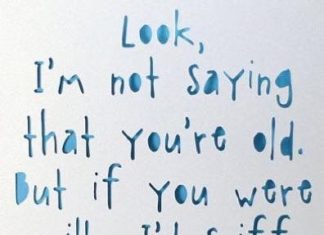 Look,
I'm not saying
that you're old.
But if you were
I'd